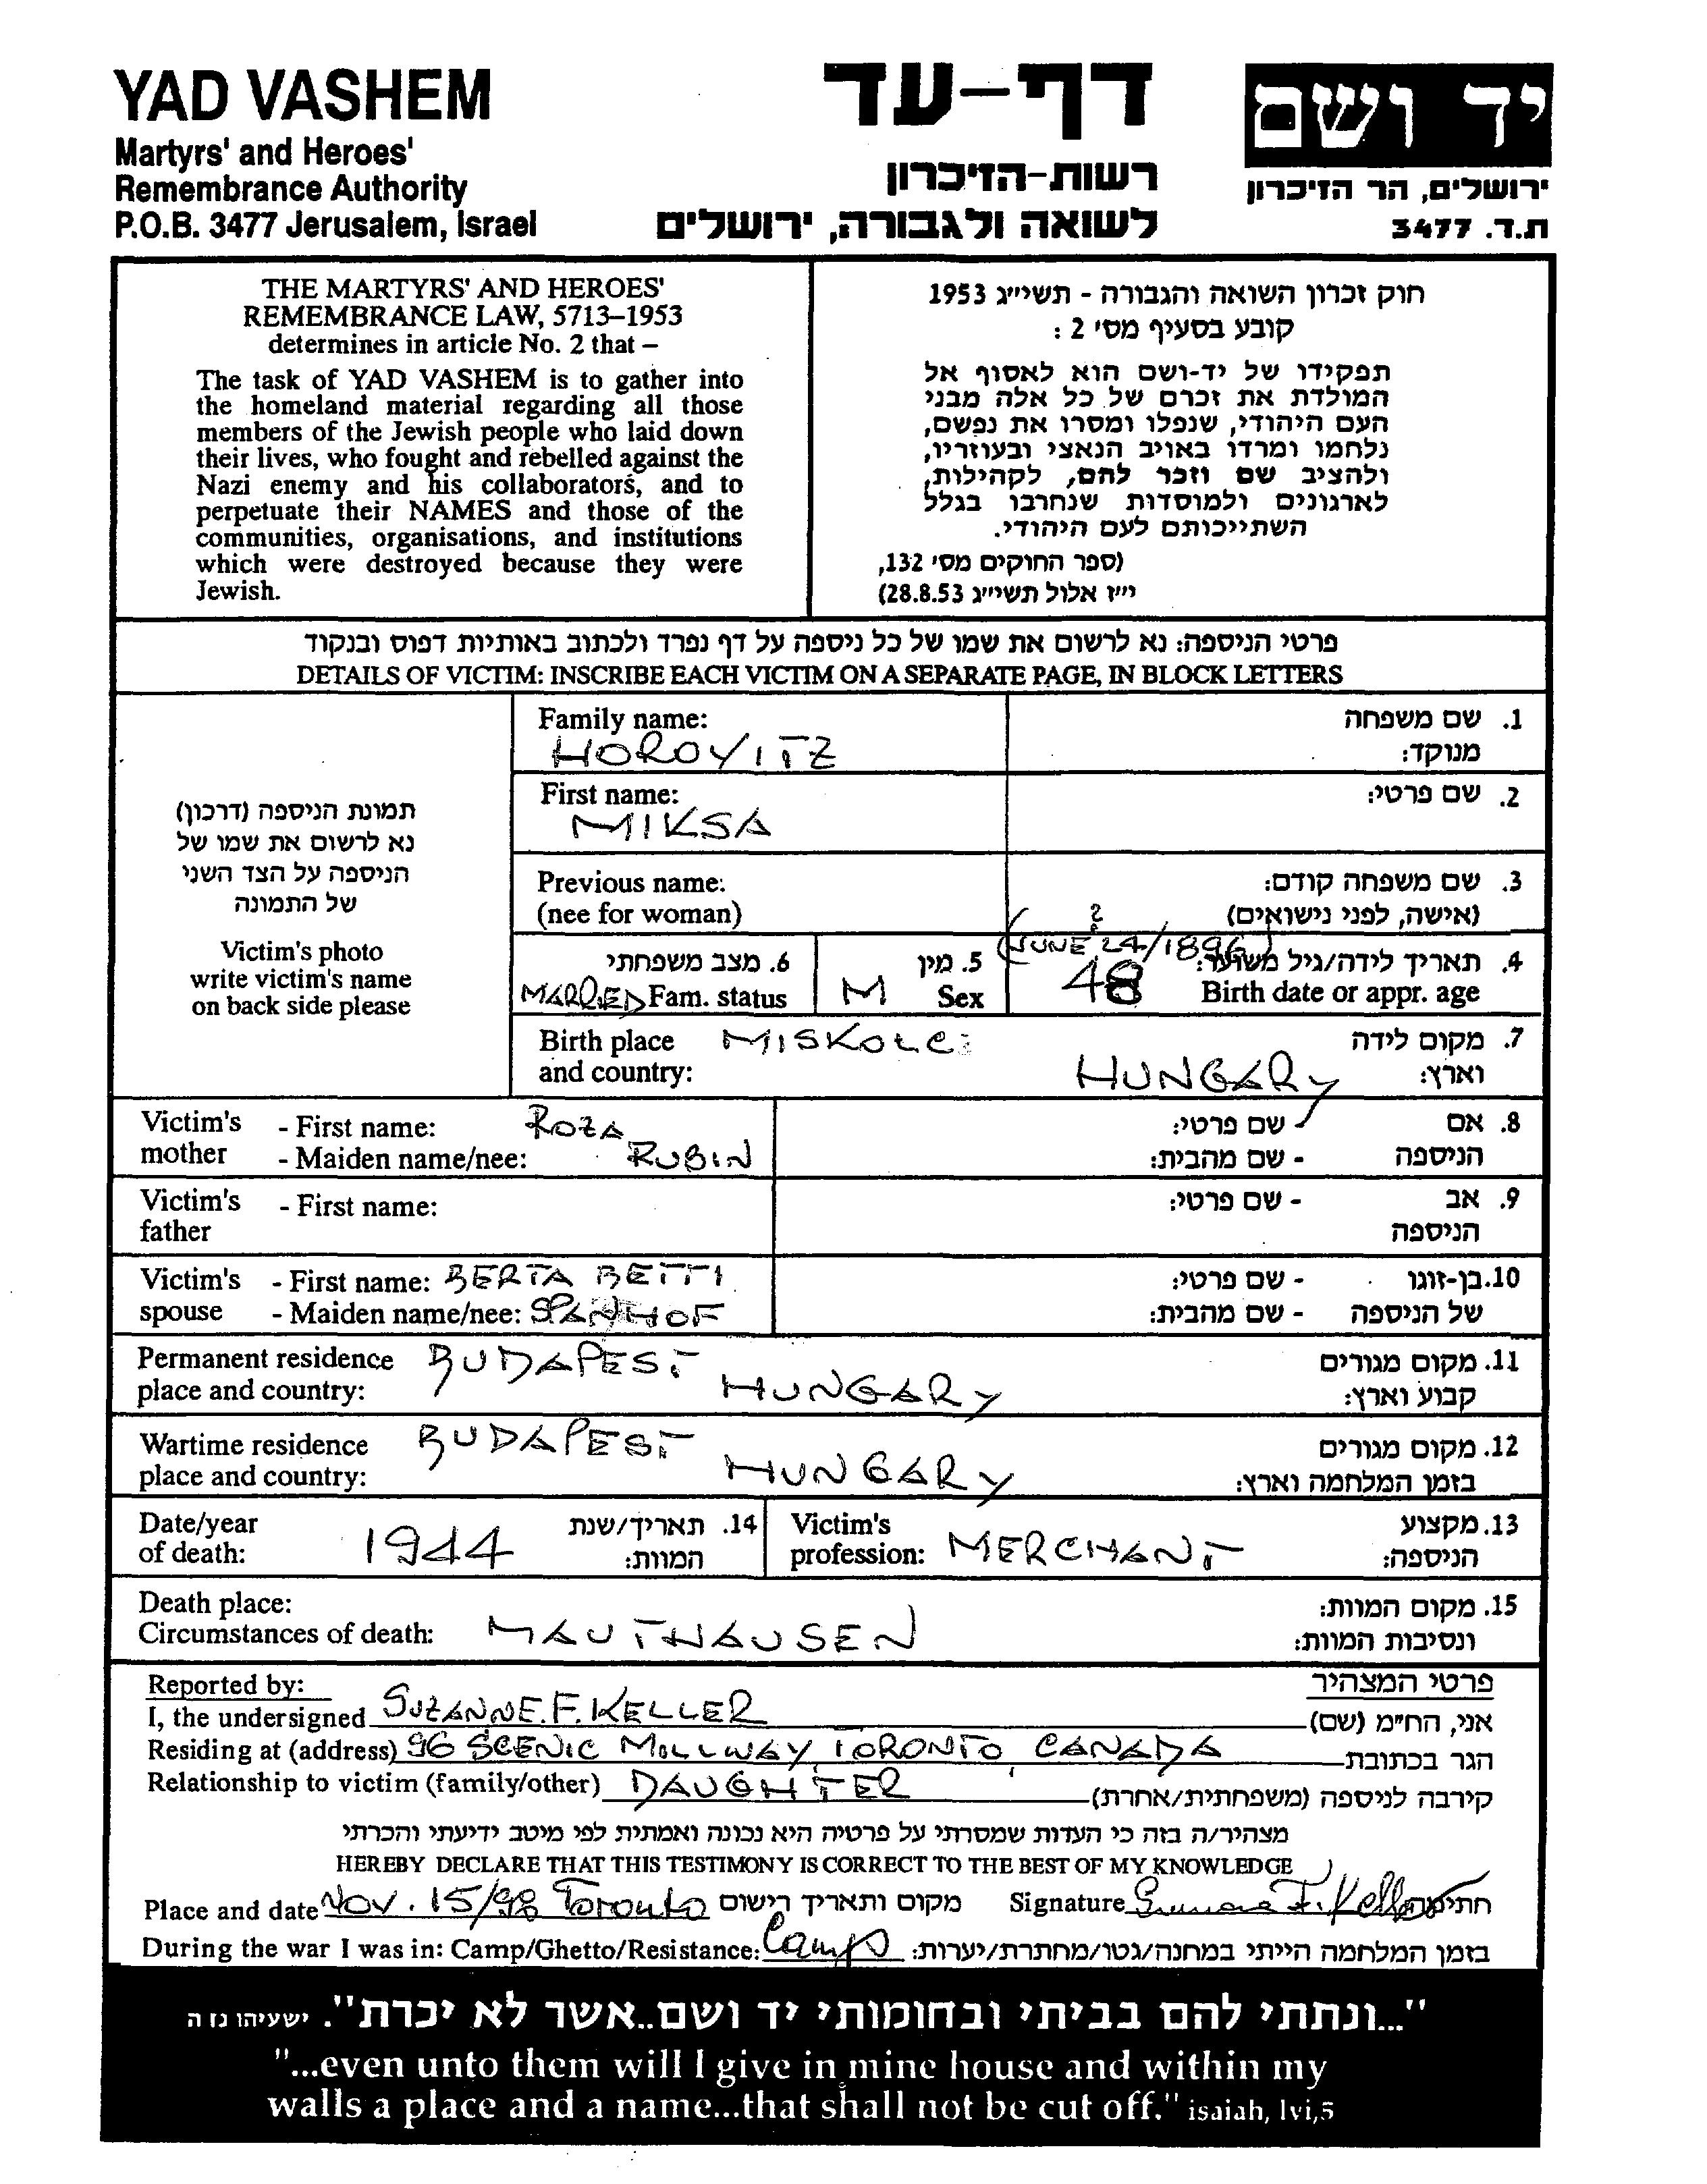 YAD VASHEM
Martyrs' and Heroes'
Remembrance Authority
P.O.B. 3477 Jerusalem, Israel
דף-עד
רשות-הזיכרון
לשואה ולגבורה, ירושלים
יד ושם
ירושלים, הר הזיכרון
ת.ד. 3477
THE MARTYRS' AND HEROES'
REMEMBRANCE LAW, 5713–1953
determines in article No. 2 that –
The task of YAD VASHEM is to gather into
the homeland material regarding all those
members of the Jewish people who laid down
their lives, who fought and rebelled against the
Nazi enemy and his collaborators, and to
perpetuate their NAMES and those of the
communities, organisations, and institutions
which were destroyed because they were
Jewish.
חוק זכרון השואה והגבורה - תשי״ג 1953
קובע בסעיף מס׳ 2 :
תפקידו של יד-ושם הוא לאסוף אל
המולדת את זכרם של כל אלה מבני
העם היהודי, שנפלו ומסרו את נפשם,
נלחמו ומרדו באויב הנאצי ובעוזריו,
ולהציב שם וזכר להם, לקהילות,
לארגונים ולמוסדות שנחרבו בגלל
השתייכותם לעם היהודי.
(ספר החוקים מס׳ 132,
י״ז אלול תשי״ג 28.8.53)
פרטי הניספה: נא לרשום את שמו של כל ניספה על דף נפרד ולכתוב באותיות דפוס ובנקוד
DETAILS OF VICTIM: INSCRIBE EACH VICTIM ON A SEPARATE PAGE, IN BLOCK LETTERS
תמונת הניספה (דרכון)
נא לרשום את שמו של
הניספה על הצד השני
של התמונה
Victim's photo
write victim's name
on back side please
Family name: 1. שם משפחה
HOROVITZ מנוקד:
First name: 2. שם פרטי:
MIKSA
Previous name: 3. שם משפחה קודם:
(nee for woman) (אישה, לפני נישואים)
(JUNE ? 24/1896)
6. מצב משפחתי 5. מין 4. תאריך לידה/גיל משוער:
MARRIED Fam. status M Sex 48 Birth date or appr. age
Birth place MISKOLC 7. מקום לידה
and country: HUNGARY וארץ:
Victim's - First name: ROZA - שם פרטי: 8. אם
mother - Maiden name/nee: RUBIN - שם מהבית: הניספה
Victim's - First name: - שם פרטי: 9. אב
father הניספה
Victim's - First name: BERTA BETTI - שם פרטי: 10. בן-זוגו
spouse - Maiden name/nee: SPANHOF - שם מהבית: של הניספה
Permanent residence BUDAPEST 11. מקום מגורים
place and country: HUNGARY קבוע וארץ:
Wartime residence BUDAPEST 12. מקום מגורים
place and country: HUNGARY בזמן המלחמה וארץ:
Date/year 14. תאריך/שנת Victim's 13. מקצוע
of death: 1944 המוות: profession: MERCHANT הניספה:
Death place: 15. מקום המוות:
Circumstances of death: MAUTHAUSEN ונסיבות המוות:
Reported by: פרטי המצהיר
I, the undersigned SUZANNE.F.KELLER אני, הח״מ (שם)
Residing at (address) 96 SCENIC MILLWAY, TORONTO, CANADA הגר בכתובת
Relationship to victim (family/other) DAUGHTER קירבה לניספה (משפחתית/אחרת)
מצהיר/ה בזה כי העדות שמסרתי על פרטיה היא נכונה ואמתית לפי מיטב ידיעתי והכרתי
HEREBY DECLARE THAT THIS TESTIMONY IS CORRECT TO THE BEST OF MY KNOWLEDGE
Place and date Nov. 15/98 Toronto מקום ותאריך רישום Signature Suzanne F. Keller חתימה
During the war I was in: Camp/Ghetto/Resistance: Camp בזמן המלחמה הייתי במחנה/גטו/מחתרת/יערות:
"...ונתתי להם בביתי ובחומותי יד ושם..אשר לא יכרת". ישעיהו נו ה
"...even unto them will I give in mine house and within my
walls a place and a name...that shall not be cut off." isaiah, lvi,5